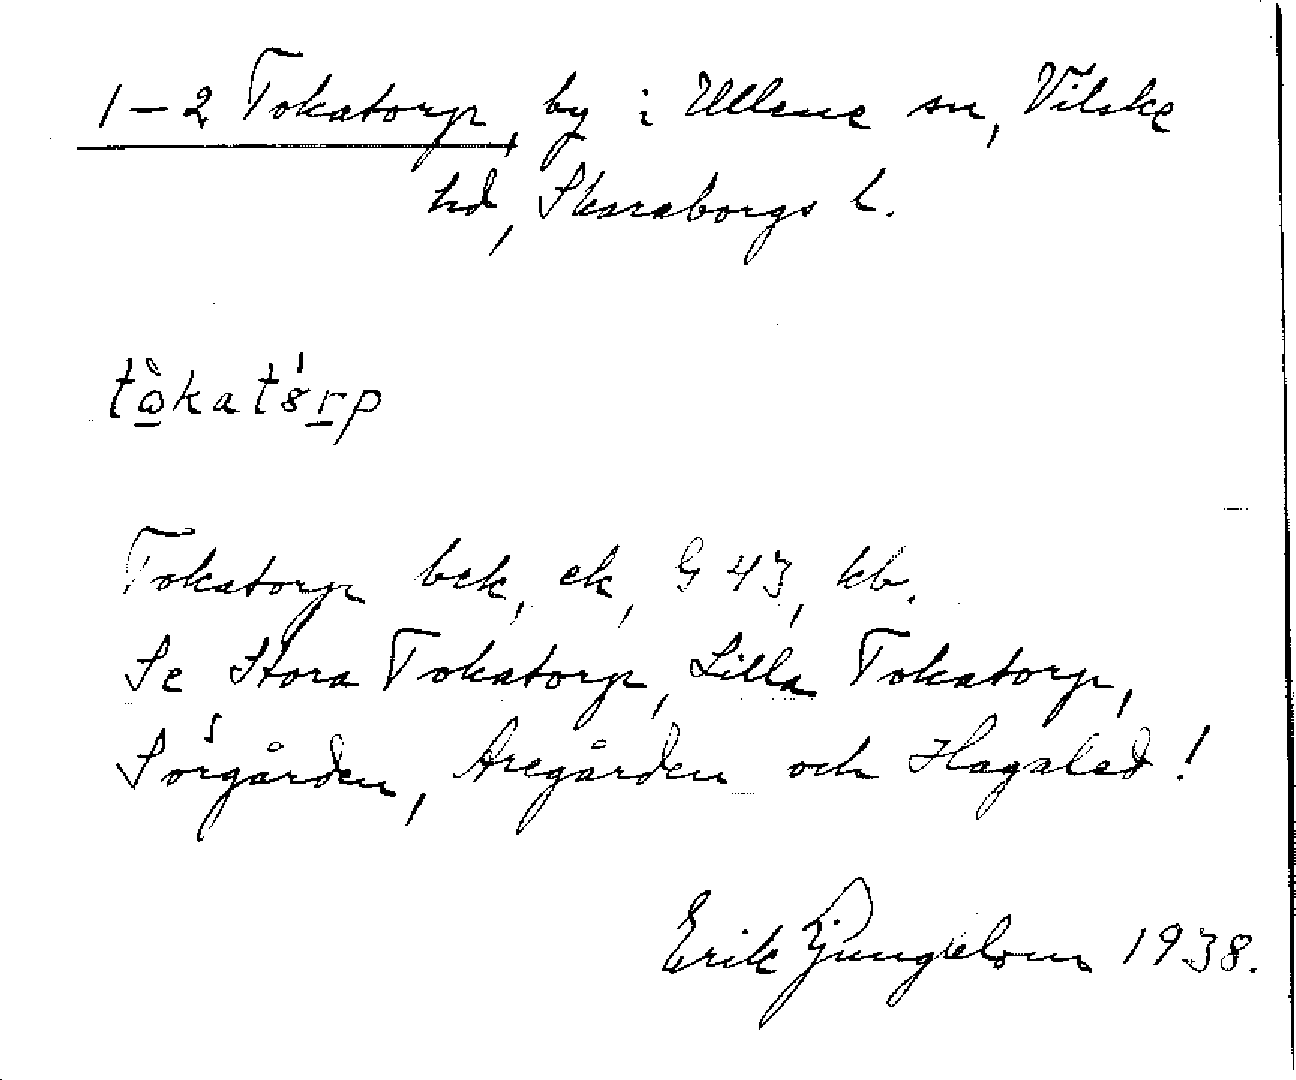 1-2 Tokatorp, by i Ullene sn, Vilske
hd, Skaraborgs l.
tò̱kats̍ṟp
Tokatorp bek, ek, G 43, kb.
Se Stora Tokatorp, Lilla Tokatorp,
Sörgården, Aregården och Hagaled!
Erik Ljungblom 1938.